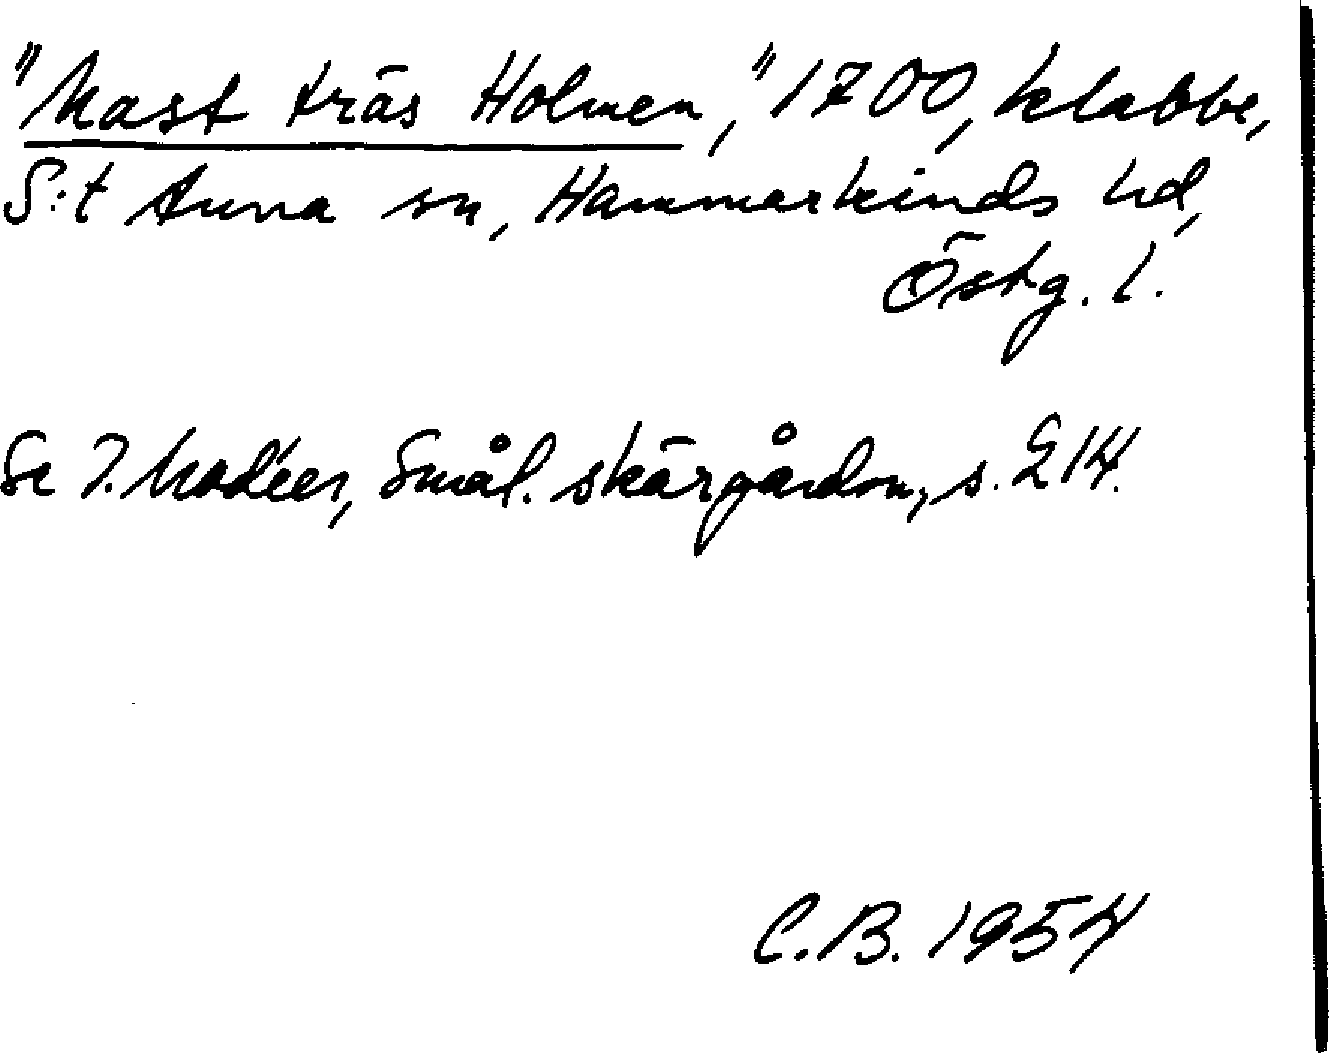 "Mast träs Holmen," 1700, klabbe,
S:t Anna sn, Hammarkinds hd,
Östg. l.
Se I. Modéer, Smål. skärgårdsn, s. 214.
C.B. 1954